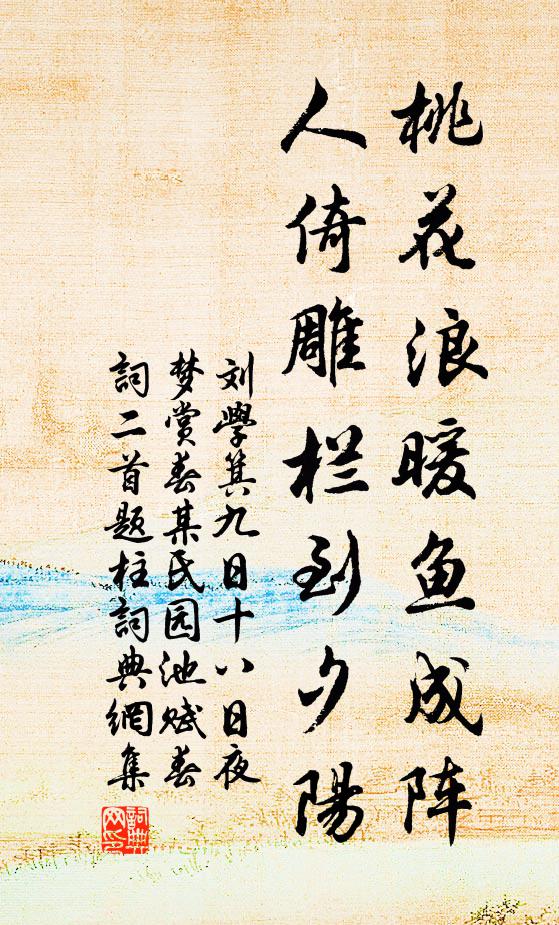 桃花浪暖鱼成阵
人倚雕栏到夕陽
刘學箕九日十八日夜
梦赏春某氏园池赋春
詞二首题柱詞典網集
詞典网印